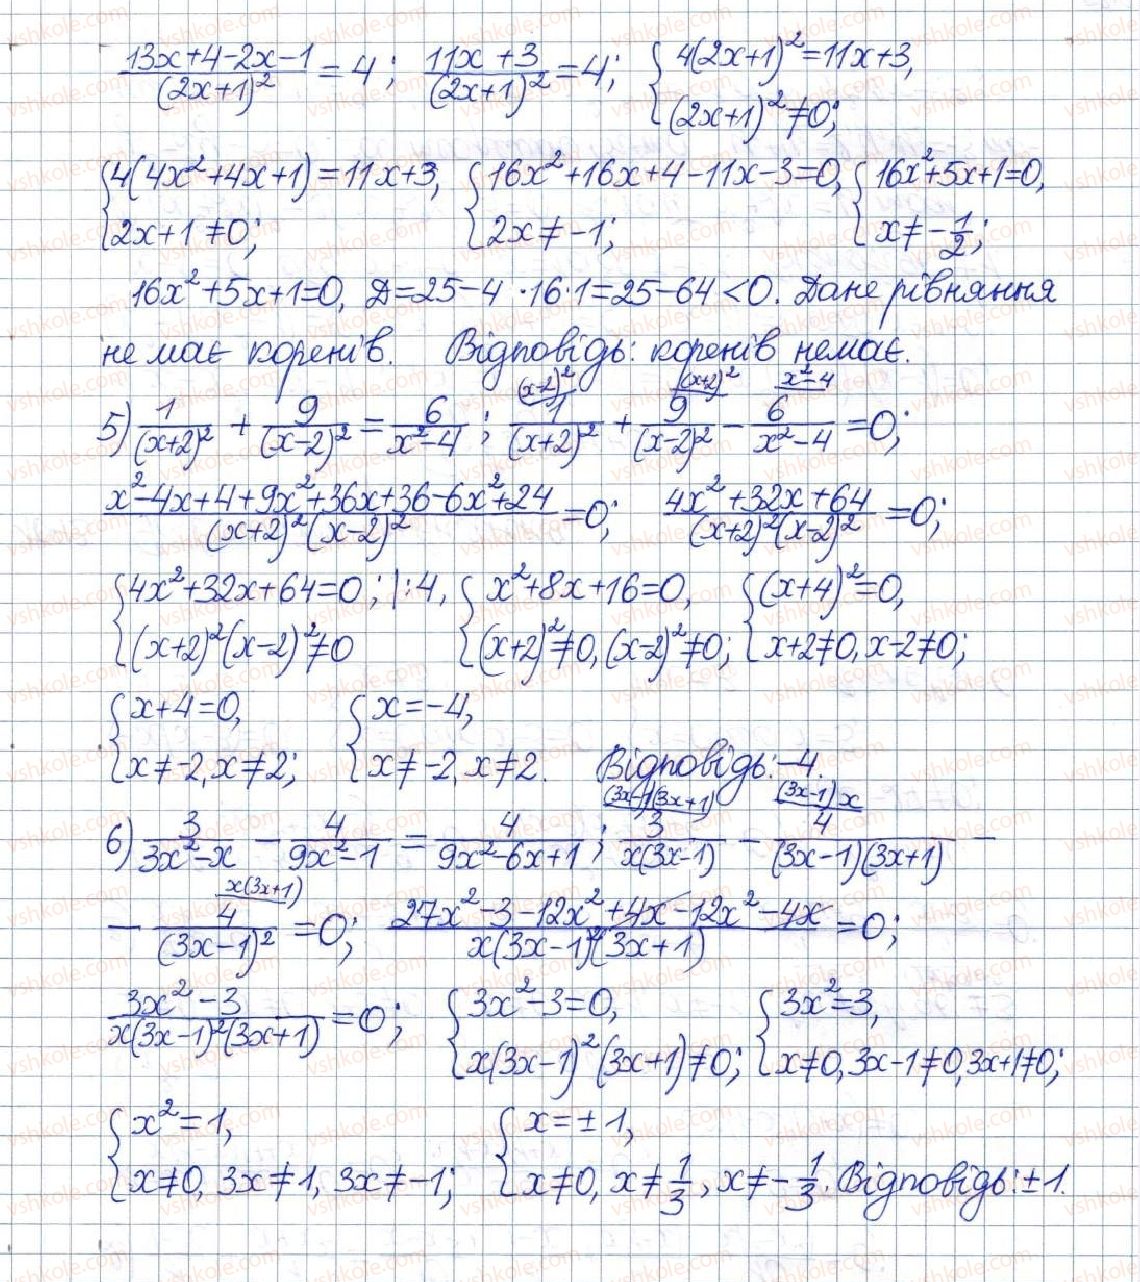 (13x+4-2x-1)/(2x+1)² = 4; (11x+3)/(2x+1)² = 4; { 4(2x+1)² = 11x+3, (2x+1)² ≠ 0;
{ 4(4x²+4x+1) = 11x+3, 2x+1 ≠ 0; { 16x²+16x+4-11x-3=0, 2x ≠ -1; { 16x²+5x+1=0, x ≠ -1/2;
16x²+5x+1=0, D=25-4·16·1=25-64<0. Дане рівняння
не має коренів. Відповідь: коренів немає.
5) 1/(x+2)² + 9/(x-2)² = 6/(x²-4); (x-2)² 1/(x+2)² + (x+2)² 9/(x-2)² - x²-4 6/(x²-4) = 0;
(x²-4x+4+9x²+36x+36-6x²+24)/((x+2)²(x-2)²) = 0; (4x²+32x+64)/((x+2)²(x-2)²) = 0;
{ 4x²+32x+64=0; |:4, (x+2)²(x-2)² ≠ 0 { x²+8x+16=0, (x+2)² ≠ 0, (x-2)² ≠ 0; { (x+4)²=0, x+2 ≠ 0, x-2 ≠ 0;
{ x+4=0, x ≠ -2, x ≠ 2; { x=-4, x ≠ -2, x ≠ 2. Відповідь: -4.
6) 3/(3x²-x) - 4/(9x²-1) = 4/(9x²-6x+1); (3x-1)(3x+1) 3/(x(3x-1)) - (3x-1)x 4/((3x-1)(3x+1)) -
- x(3x+1) 4/(3x-1)² = 0; (27x²-3-12x²+4x-12x²-4x)/(x(3x-1)²(3x+1)) = 0;
(3x²-3)/(x(3x-1)²(3x+1)) = 0; { 3x²-3=0, x(3x-1)²(3x+1) ≠ 0; { 3x²=3, x ≠ 0, 3x-1 ≠ 0, 3x+1 ≠ 0;
{ x²=1, x ≠ 0, 3x ≠ 1, 3x ≠ -1; { x=±1, x ≠ 0, x ≠ 1/3, x ≠ -1/3. Відповідь: ±1.